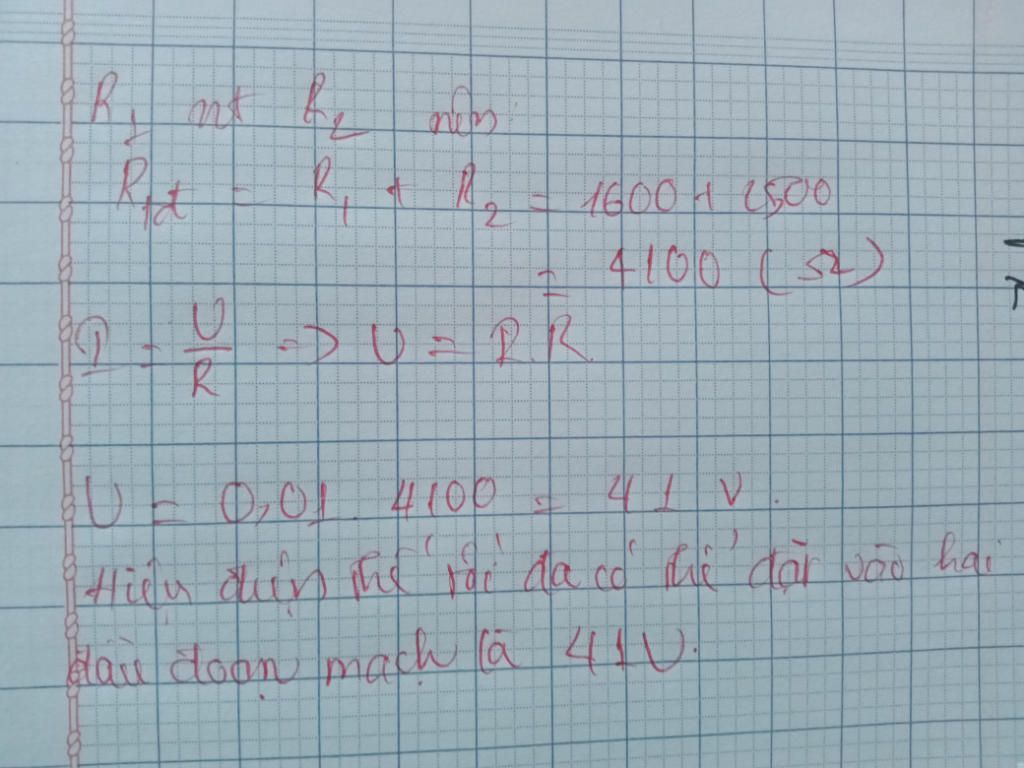 R₁ nt R₂ nên:
R₁d = R₁ + R₂ = 1600 + 2500
= 4100 (Ω)
I = U/R => U = I.R.
U = 0,01. 4100 = 41 V.
Hiệu điện thế tối đa có thể đặt vào hai
đầu đoạn mạch là 41V.